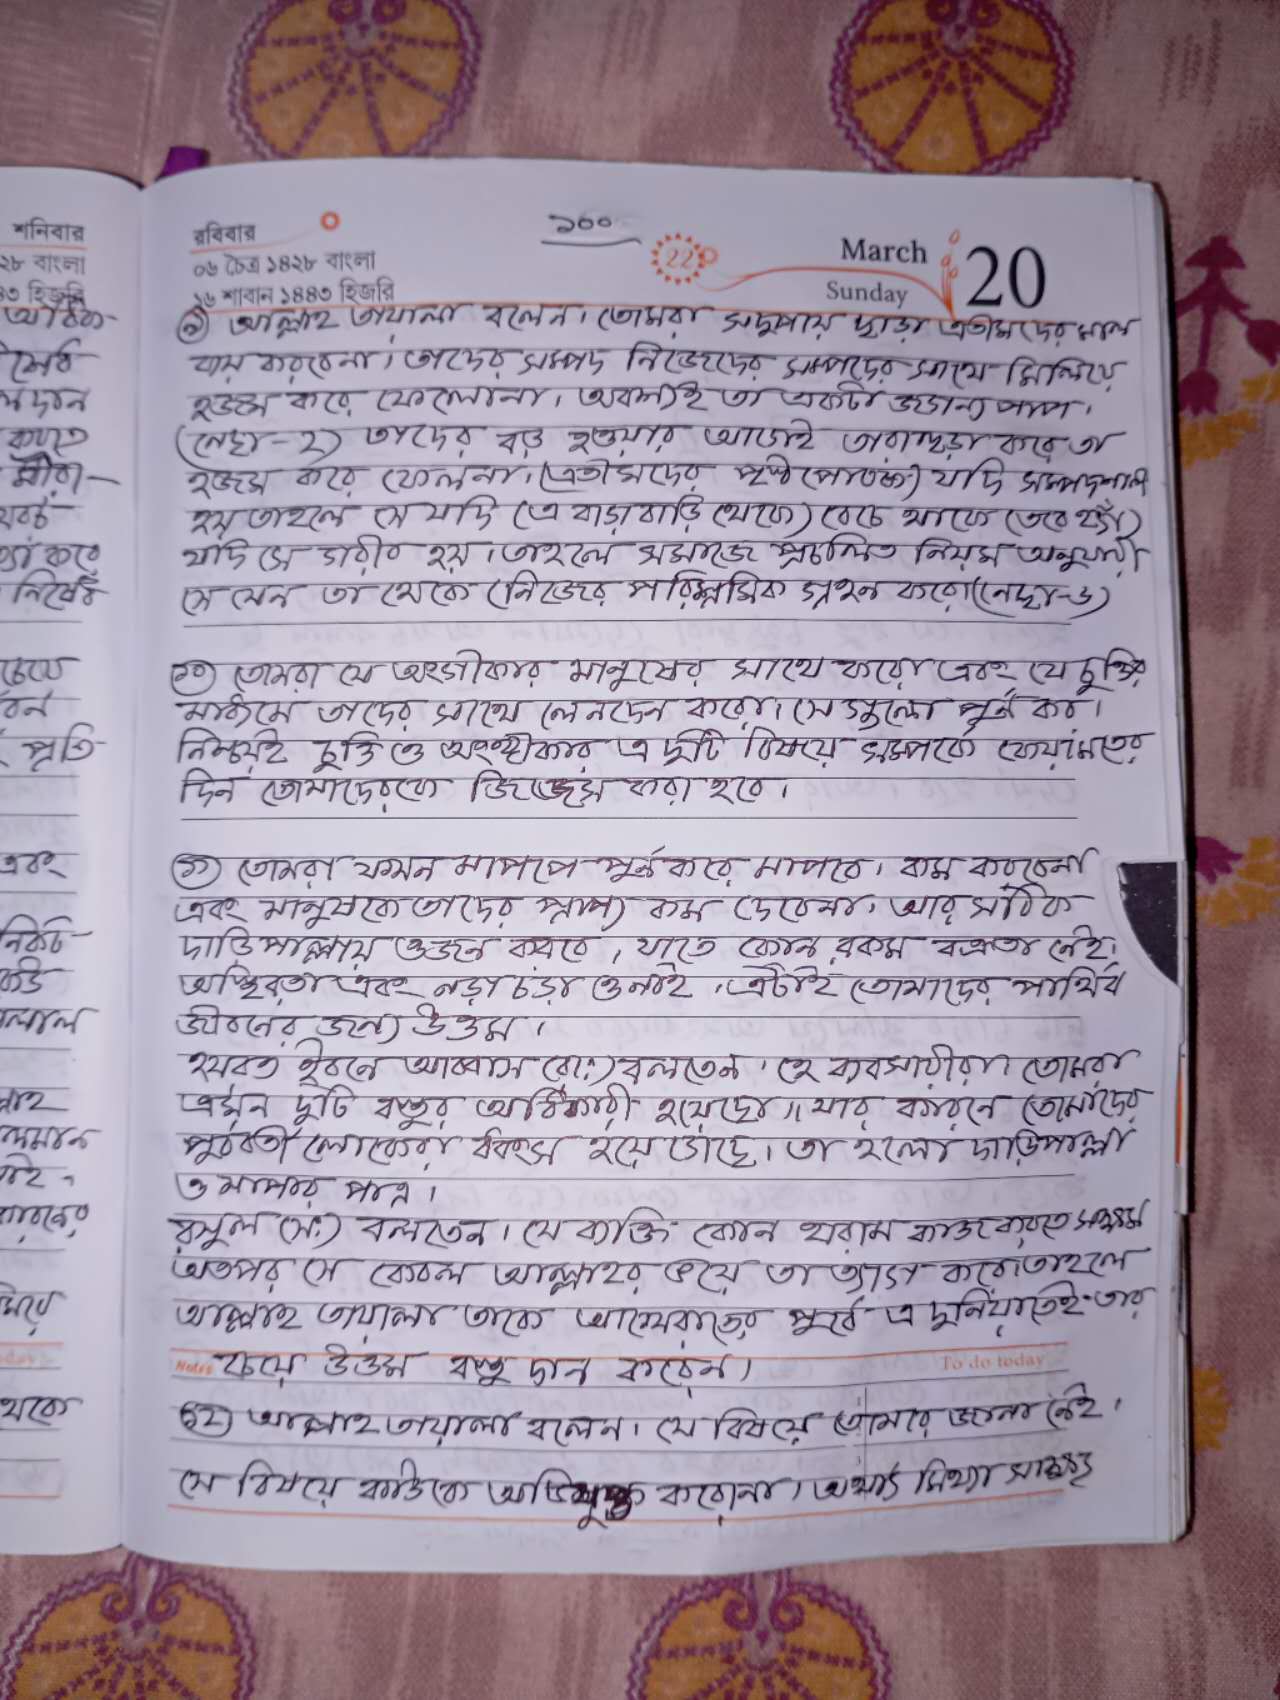 শনিবার
২৮ বাংলা
৪৩ হিজরি
রবিবার
০৬ চৈত্র ১৪২৮ বাংলা
১৬ শাবান ১৪৪৩ হিজরি
১৩০
22
March
Sunday
20
৯) আল্লাহ তায়ালা বলেন। তোমরা সদুপায় ছাড়া এতীমদের মাল
খায় করবেনা। তাদের সম্পদ নিজেদের সম্পদের সাথে মিলিয়ে
হজম করে ফেলোনা। অবশ্যই তা একটা জঘন্য পাপ।
(নেছা-২) তাদের বড় হওয়ার আগেই তারাহুড়া করে তা
হজম করে ফেলনা। (এতীমদের পৃষ্ঠপোষক) যদি সম্পদশালী
হয় তাহলে সে যদি (এ বাড়াবাড়ি থেকে) বেচে থাকে (তবে
যদি সে গরীব হয়। তাহলে সমাজে প্রচলিত নিয়ম অনুযায়ী
সে যেন তা থেকে (নিজের পরিশ্রমিক গ্রহন করে। (নেছা-৬)
১০) তোমরা যে অংগীকার মানুষের সাথে করো এবং যে চুক্তির
মাধ্যমে তাদের সাথে লেনদেন করো। সে গুলো পূর্ন কর।
নিশ্চয়ই চুক্তি ও অংগীকার এ দুটি বিষয়ে সম্পর্কে কেয়ামতের
দিন তোমাদেরকে জিজ্ঞেস করা হবে।
১১) তোমরা যখন মাপপে পূর্ন করে মাপবে। কম করবেনা
এবং মানুষকে তাদের প্রাপ্য কম দেবেনা। আর সঠিক
দাড়িপাল্লায় ওজন করবে, যাতে কোন রকম বক্রতা নেই।
অস্থিরতা এবং নড়া চড়া ও নাই। এটাই তোমাদের পার্থিব
জীবনের জন্য উত্তম।
হযরত ইবনে আব্বাস (রাঃ) বলতেন। হে ব্যবসায়ীরা। তোমরা
এমন দুটি বস্তুর অধিকারী হয়েছো।। যার কারনে তোমাদের
পূর্ববর্তী লোকেরা ধবংস হয়ে গেছে। তা হলো দাড়িপাল্লা
ও মাপার পাত্র।
রসুল (সঃ) বলতেন। যে ব্যক্তি কোন হারাম কাজ করতে সক্ষম
অতপর সে কেবল আল্লাহর ভয়ে তা ত্যাগ করে। তাহলে
আল্লাহ তায়ালা তাকে আখেরাতের পূর্বে এ দুনিয়াতেই তার
Notes চেয়ে উত্তম বস্তু দান করেন। To do today
১২) আল্লাহ তায়ালা বলেন। যে বিষয়ে তোমার জানা নেই।
সে বিষয়ে কাউকে অভিযুক্ত করোনা। অর্থাৎ মিথ্যা